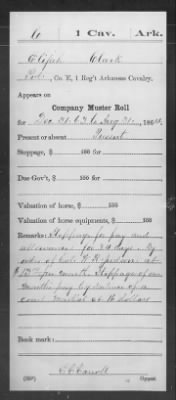 C | 1 Cav. | Ark.
Elijah Clark
Pvt., Co. E, 1 Reg't Arkansas Cavalry.
Appears on
Company Muster Roll
for Dec. 31. 63 to Aug 31., 1864.
Present or absent Present
Stoppage, $ 100 for
Due Gov't, $ 100 for
Valuation of horse $ 100
Valuation of horse equipments, $ 100
Remarks: Stoppage for pay and
allowance for 34 days. By
order of
$ per month. Stoppage of one
months pay by sentence of a
court martial at 16 dollars
Book mark:
(358) Copyist.